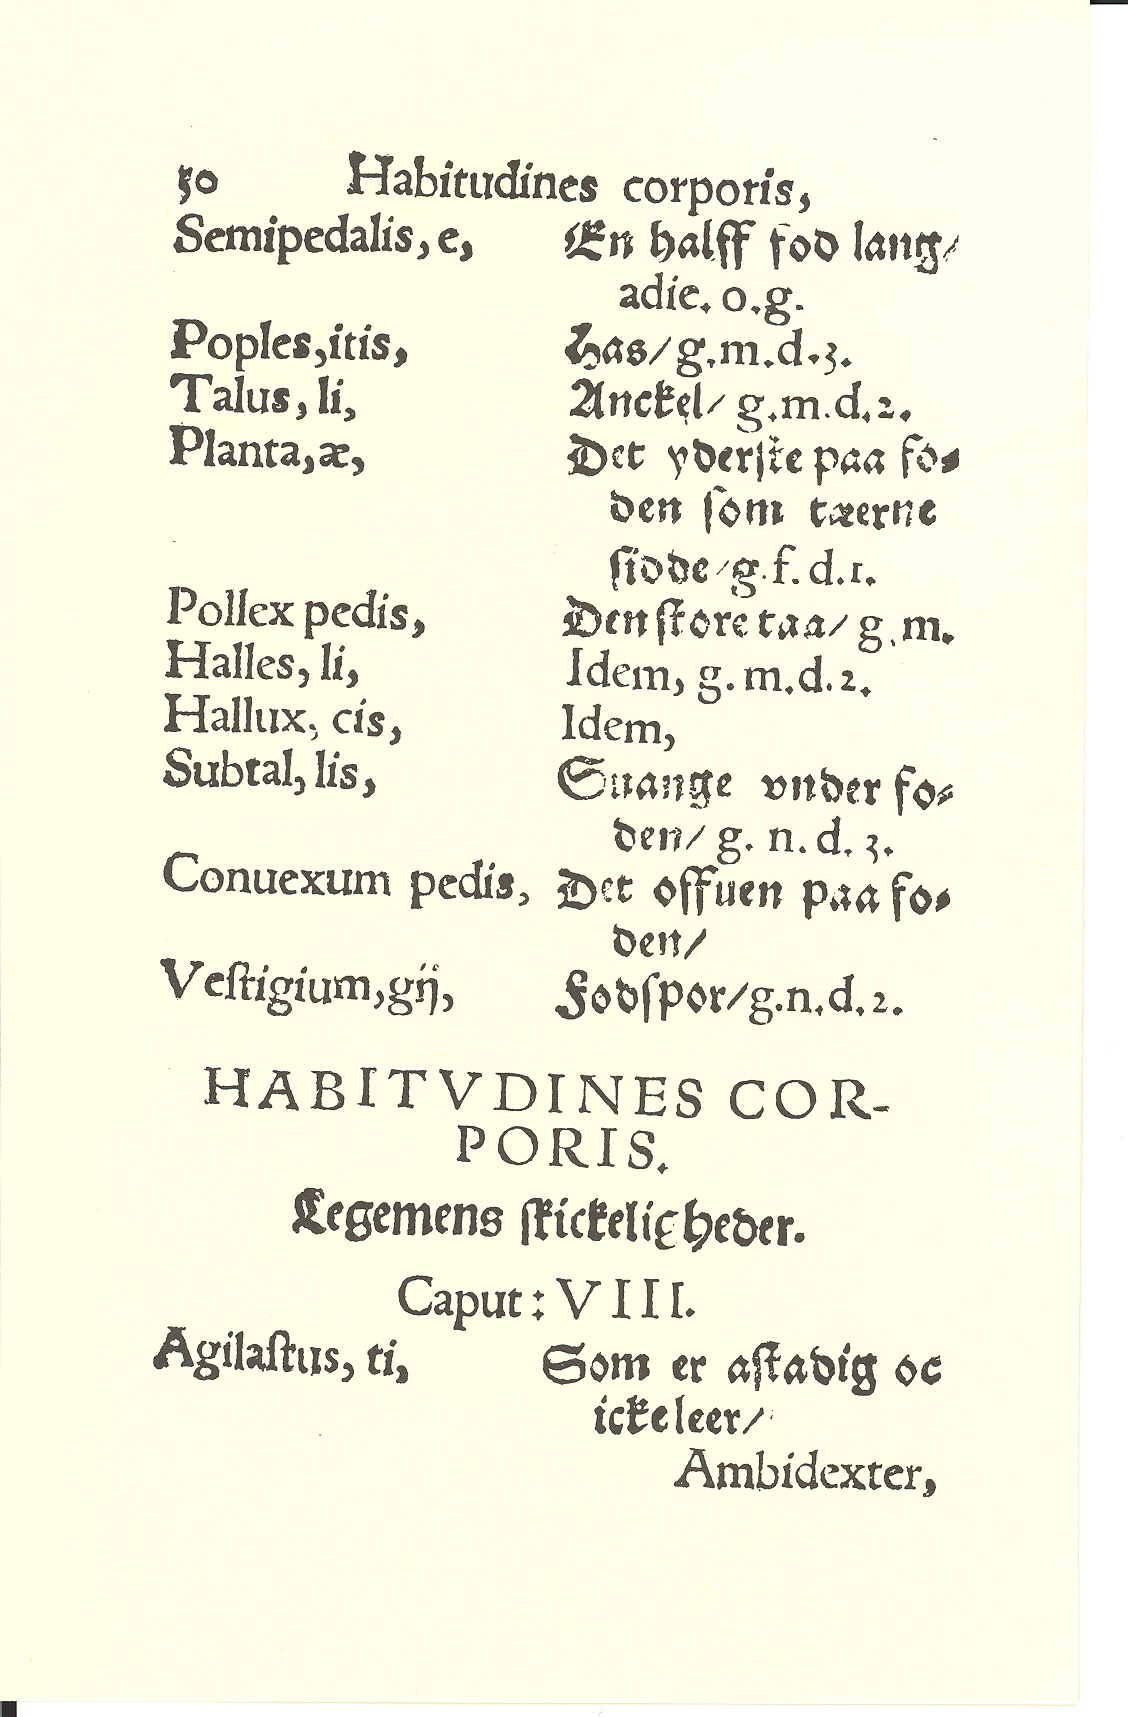 50 Habitudines corporis,
Semipedalis, e, En halff fod lang/
adie. o.g.
Poples, itis, Has/ g.m.d.3.
Talus, li, Anckel/ g.m.d.2.
Planta, æ, Det yderste paa fo-
den ſom tæerne
ſidde/ g.f.d.1.
Pollex pedis, Den ſtore taa/ g.m.
Halles, li, Idem, g.m.d.2.
Hallux, cis, Idem,
Subtal, lis, Suange vnder fo-
den/ g. n. d. 3.
Conuexum pedis, Det offuen paa fo-
den/
Veſtigium, gij, Fodſpor/ g.n.d.2.
HABITVDINES COR-
PORIS.
Legemens ſkickeligheder.
Caput: VIII.
Agilaſtus, ti, Som er aſtadig oc
icke leer/
Ambidexter,